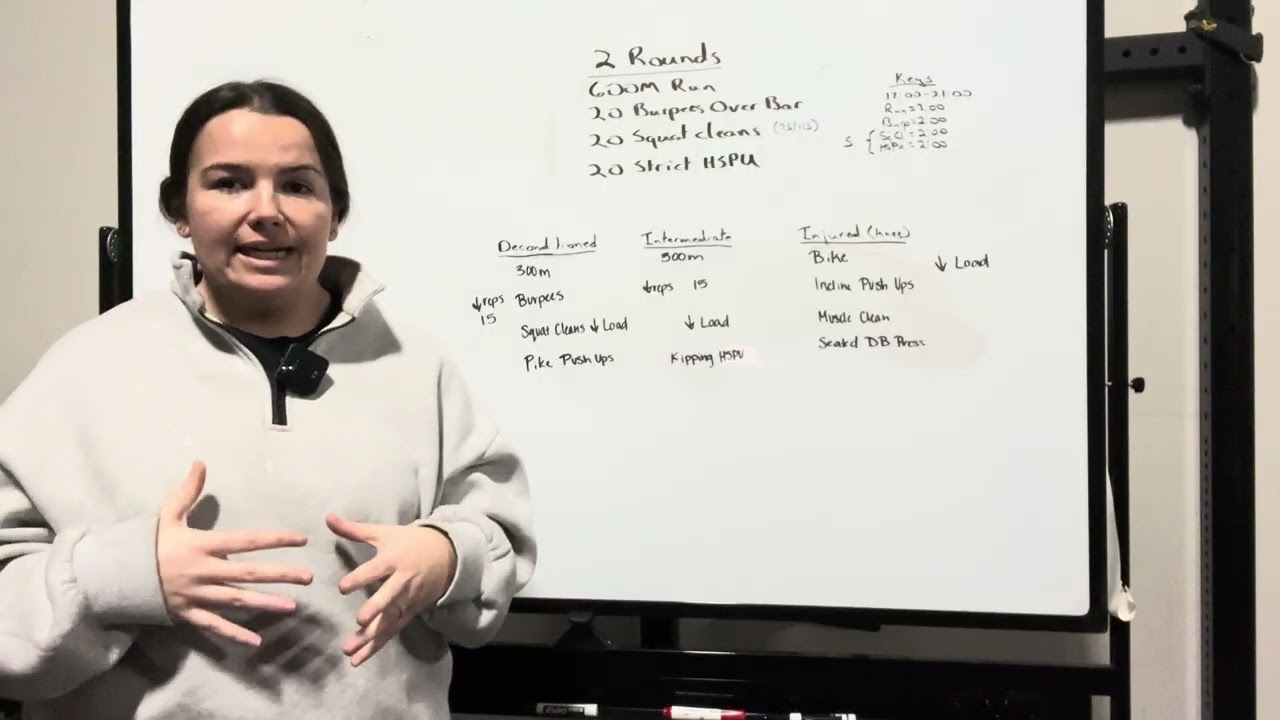 2 Rounds
600M Run
20 Burpees Over Bar
20 Squat cleans (75/115)
20 Strict HSPU
Keys
17:00-21:00
Run = 3:00
Burp = 2:00
S { Sq Cl = 2:00
HSPU = 2:00
Deconditioned
300m
↓reps Burpees
15
Squat Cleans ↓ Load
Pike Push Ups
Intermediate
500m
↓reps 15
↓ Load
Kipping HSPU
Injured (knee)
Bike
↓ Load
Incline Push Ups
Muscle Clean
Seated DB Press